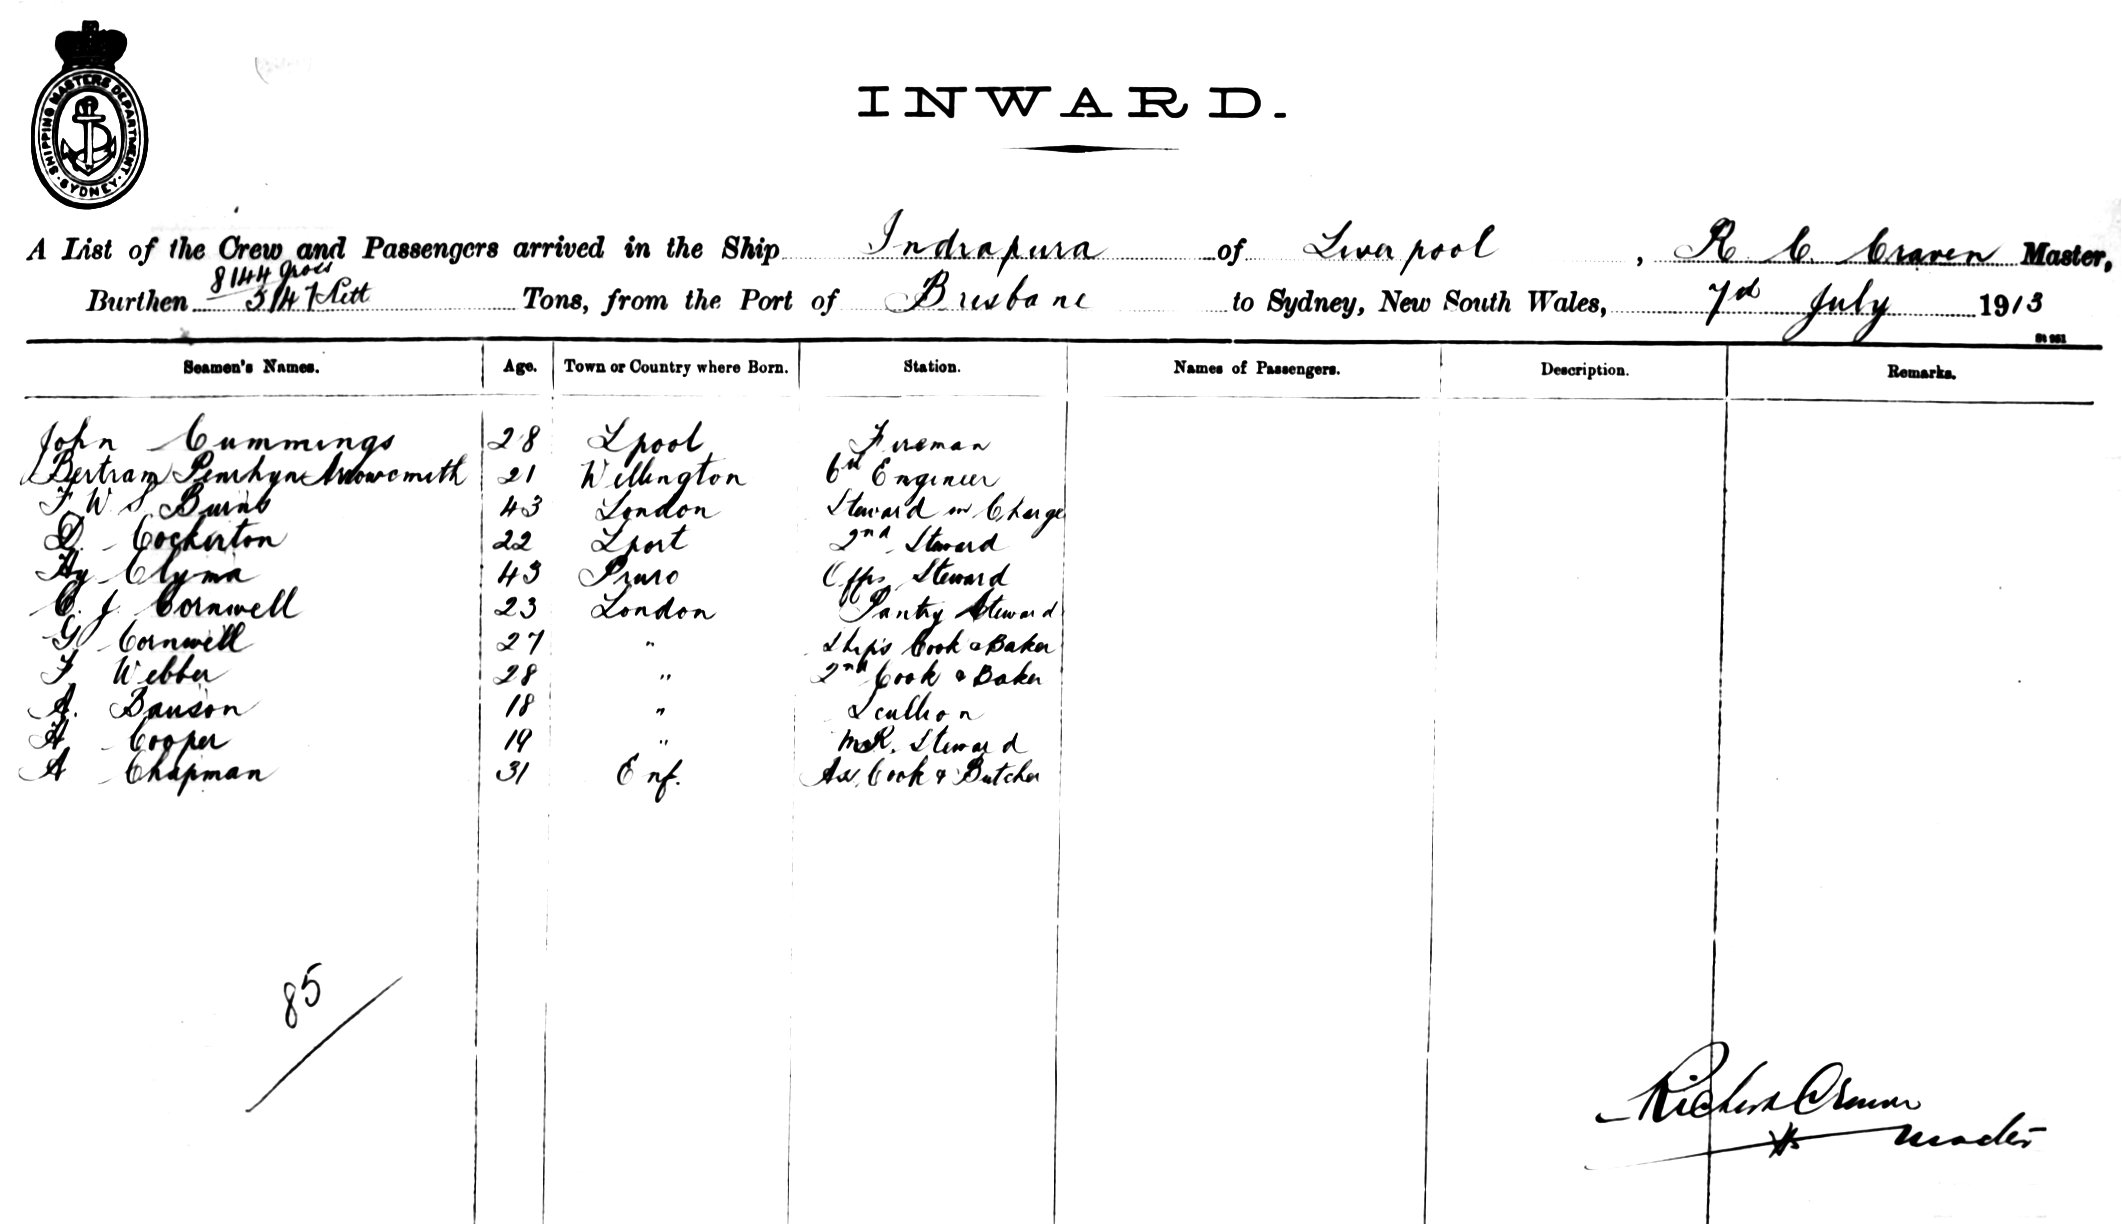 SHIPPING MASTERS DEPARTMENT · SYDNEY ·
INWARD.
A List of the Crew and Passengers arrived in the Ship Indrapura of Liverpool, R C Craven Master,
8144 gross
Burthen 5147 Nett Tons, from the Port of Brisbane to Sydney, New South Wales, 7th July 1913
Seamen's Names. Age. Town or Country where Born. Station. Names of Passengers. Description. Remarks.
John Cummings 28 Lpool Fireman
Bertram Penrhyn Arrowsmith 21 Wellington 6th Engineer
F W S Burns 43 London Steward in Charge
D. Cockerton 22 Lport 2nd Steward
Hy Clyma 43 Truro Offs Steward
C. J. Cornwell 23 London Pantry Steward
G Cornwell 27 " Ships Cook & Baker
F Webber 28 " 2nd Cook & Baker
A. 18 " Scullion
A Cooper 19 " M.R. Steward
A Chapman 31 Ass Cook & Butcher
85
Richard Craven
Master